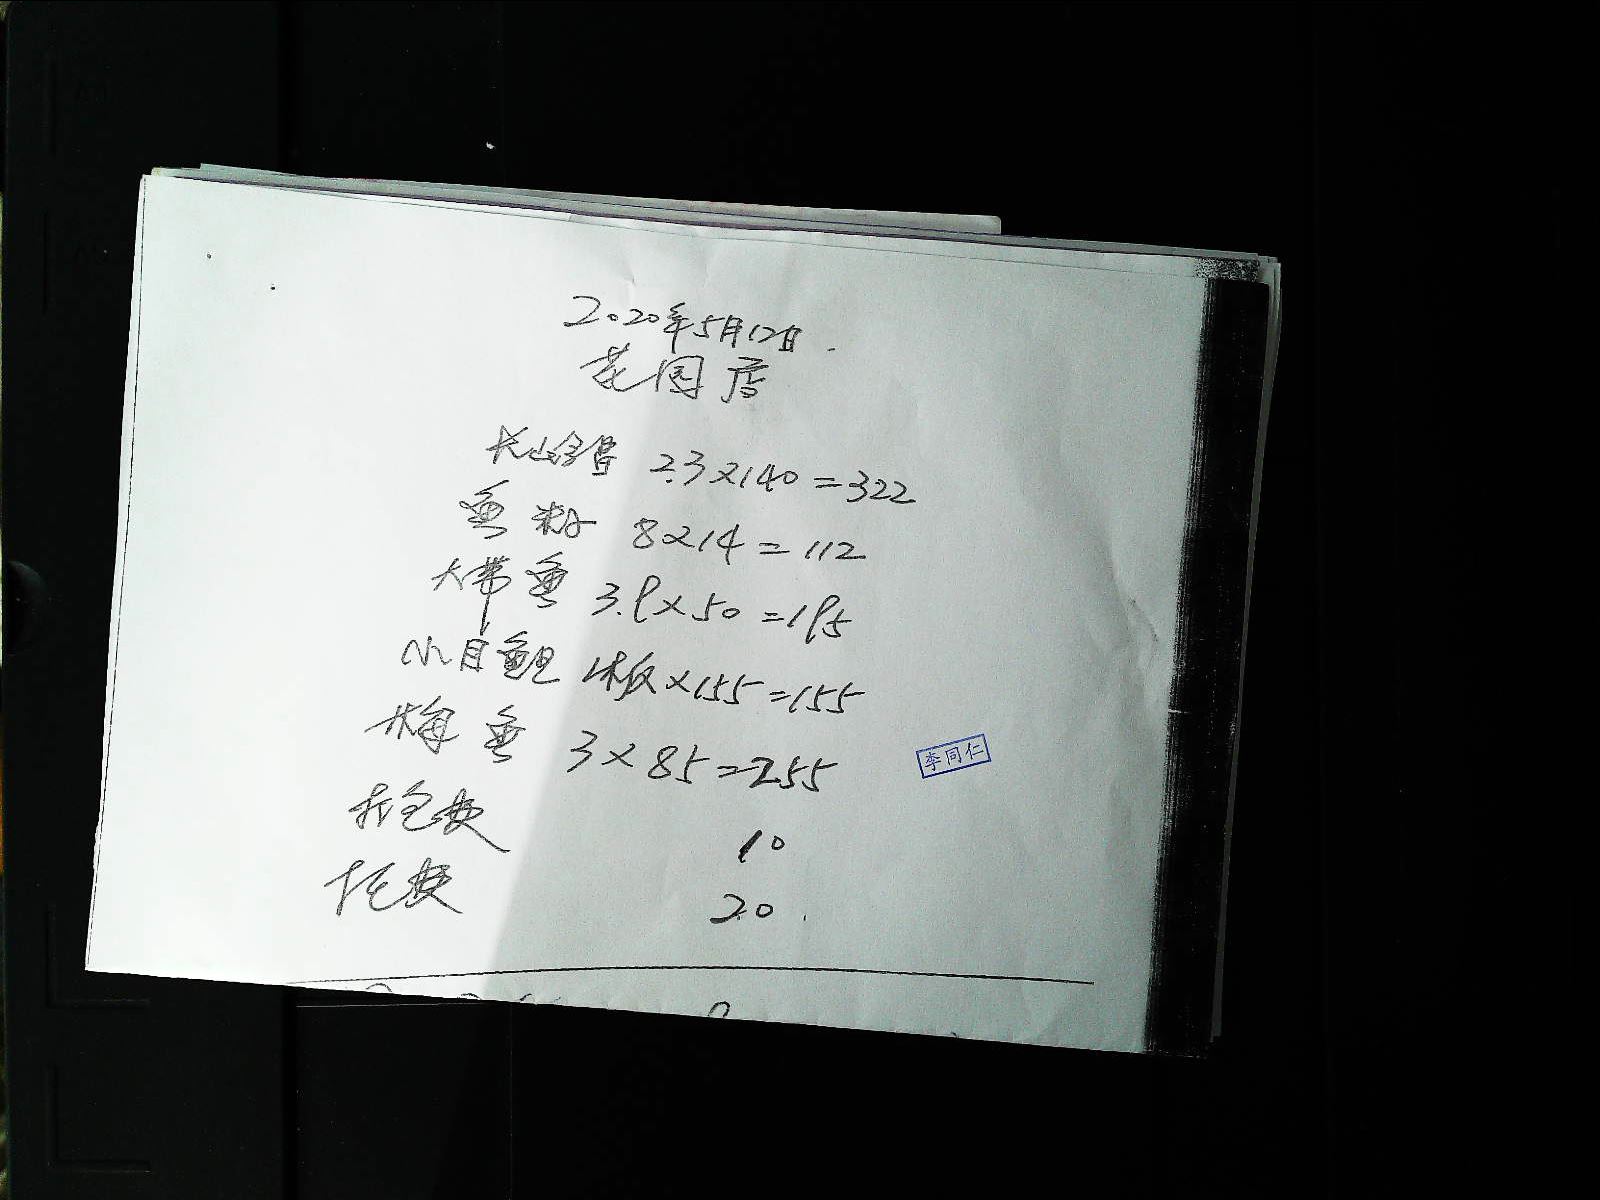 2020年5月12日.
花园店
2.3×140=322
鱼籽 8×14=112
大带鱼 3.9×50=195
小目鱼旦 1板×155=155
梅鱼 3×85=255
李同仁
打包费 10
托费 20.